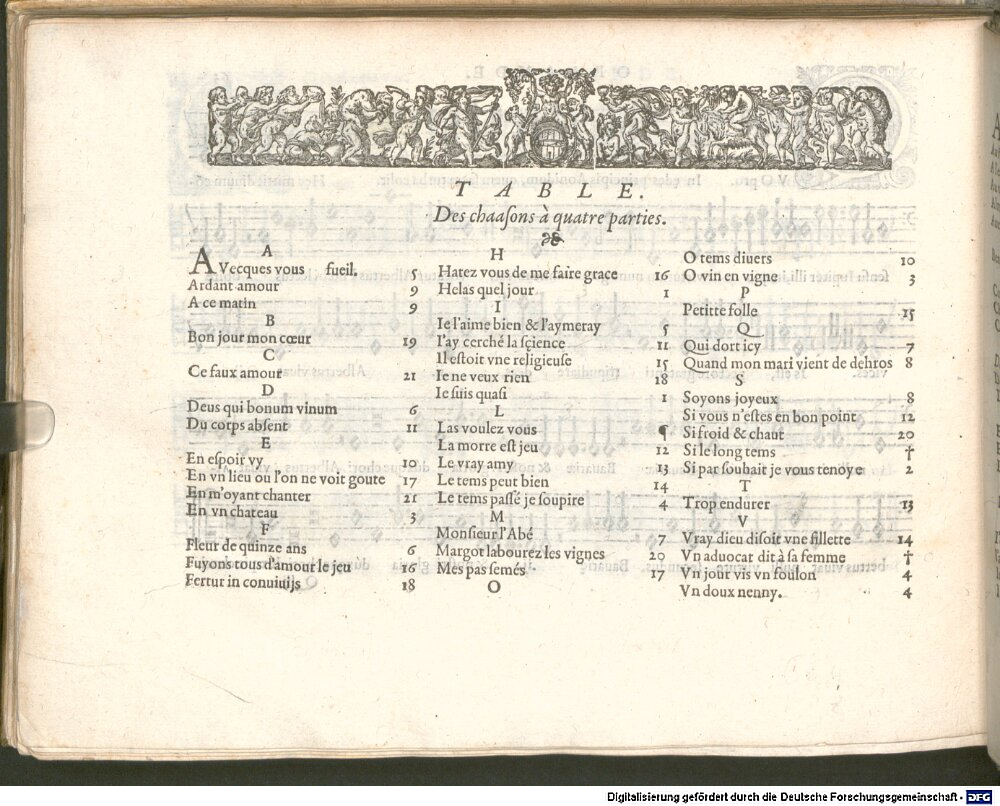 TABLE.
Des chaasons à quatre parties.
A
AVecques vous fueil. 5
Ardant amour 9
A ce matin 9
B
Bon jour mon cœur 19
C
Ce faux amour 21
D
Deus qui bonum vinum 6
Du corps absent 11
E
En espoir vy 10
En vn lieu ou l'on ne voit goute 17
En m'oyant chanter 21
En vn chateau 3
F
Fleur de quinze ans 6
Fuyons tous d'amour le jeu 16
Fertur in conuiuijs 18
H
Hatez vous de me faire grace 16
Helas quel jour 1
I
Ie l'aime bien & l'aymeray 5
I'ay cerché la sçience 11
Il estoit vne religieuse 15
Ie ne veux rien 18
Ie suis quasi 1
L
Las voulez vous ¶
La morre est jeu 12
Le vray amy 13
Le tems peut bien 14
Le tems passé je soupire 4
M
Monsieur l'Abé 7
Margot labourez les vignes 20
Mes pas semés 17
O
O tems diuers 10
O vin en vigne 3
P
Petitte folle 15
Q
Qui dort icy 7
Quand mon mari vient de dehros 8
S
Soyons joyeux 8
Si vous n'estes en bon point 12
Si froid & chaut 20
Si le long tems †
Si par souhait je vous tenoye 2
T
Trop endurer 13
V
Vray dieu disoit vne fillette 14
Vn aduocat dit à sa femme †
Vn jour vis vn foulon 4
Vn doux nenny. 4
Digitalisierung gefördert durch die Deutsche Forschungsgemeinschaft - DFG